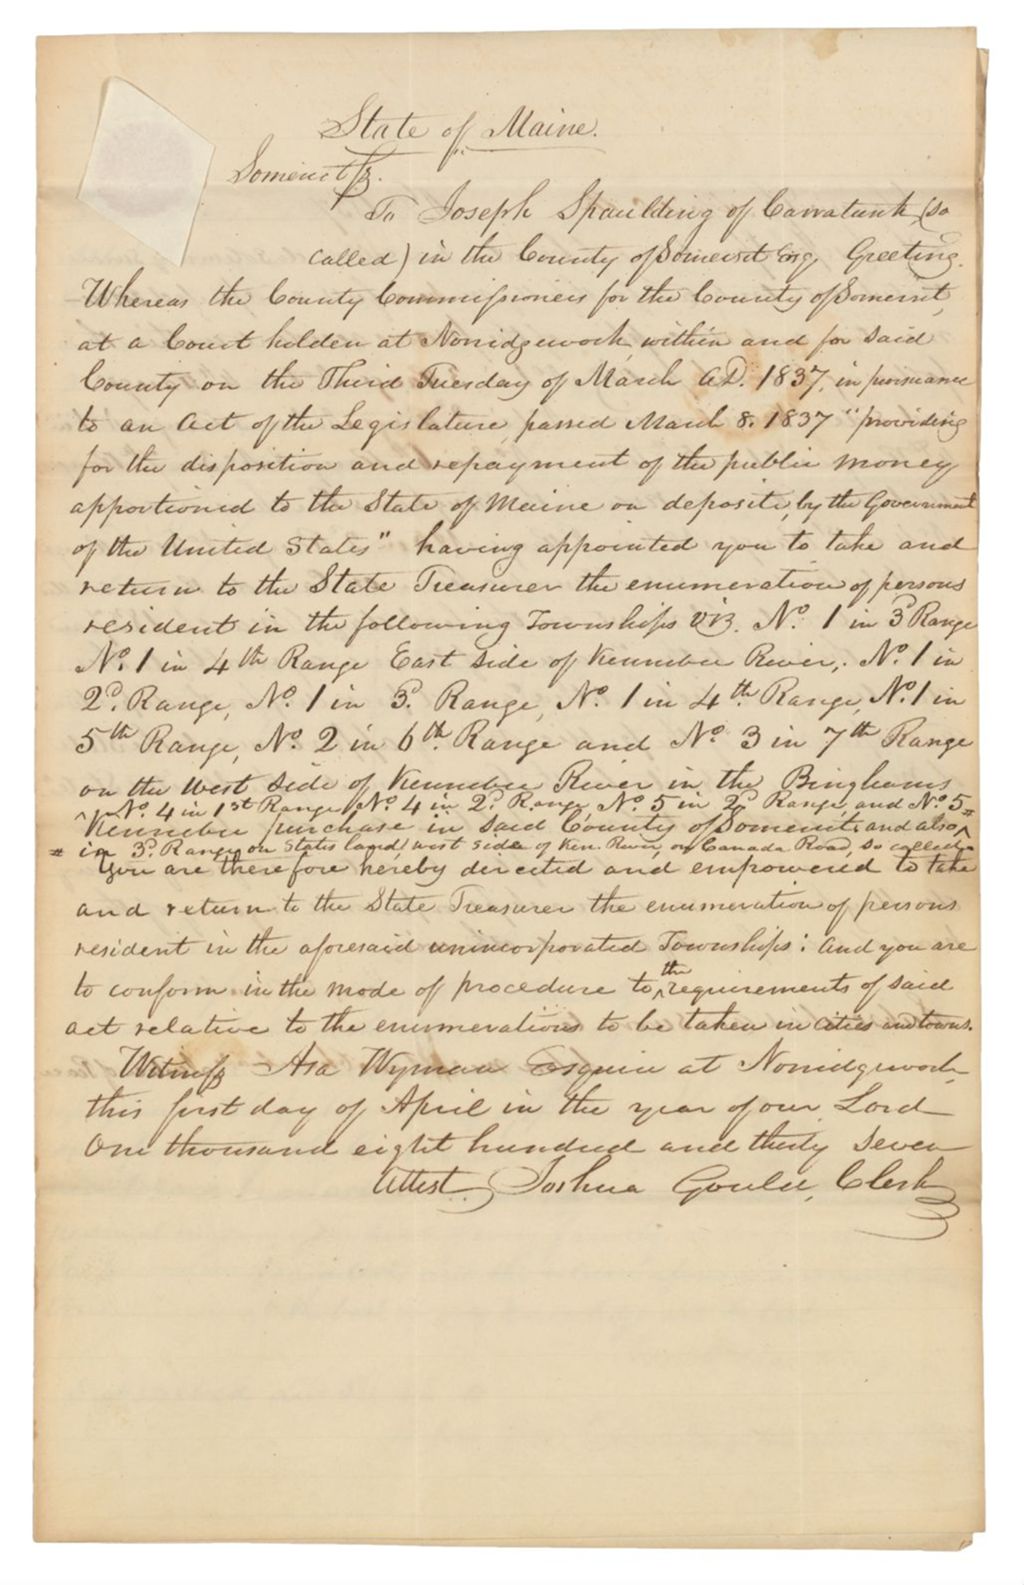 State of Maine.
Somerset ss.
To Joseph Spaulding of Carratunk, (so
called) in the County of Somerset Esq, Greeting.
Whereas the County Commissioners for the County of Somerset,
at a Court holden at Norridgewock, within and for said
County on the Third Tuesday of March A.D. 1837, in pursuance
to an Act of the Legislature, passed March 8. 1837 "providing
for the disposition and repayment of the public money
apportioned to the State of Maine on deposite, by the Government
of the United States" having appointed you to take and
return to the State Treasurer the enumeration of persons
resident in the following Townships viz. No. 1 in 3d Range
No. 1 in 4th Range East side of Kennebec River,. No. 1 in
2d. Range, No. 1 in 3d. Range, No. 1 in 4th. Range, No. 1 in
5th Range, No. 2 in 6th. Range and No. 3 in 7th Range
on the West side of Kennebec River in the Binghams
^ No. 4 in 1st Range, No. 4 in 2d. Range, No. 5 in 2d Range, and No. 5 #
Kennebec purchase in said County of Somerset, and also ^
# in 3d. Range on States land, west side of Ken. River, on Canada Road, so called
You are therefore hereby directed and empowered to take
and return to the State Treasurer the enumeration of persons
resident in the aforesaid unincorporated Townships: And you are
to conform in the mode of procedure to ^the requirements of said
act relative to the enumerations to be taken in cities and towns.
Witness Asa Wyman Esquire at Norridgewock
this first day of April in the year of our Lord
One thousand eight hundred and thirty seven
Attest, Joshua Gould, Clerk